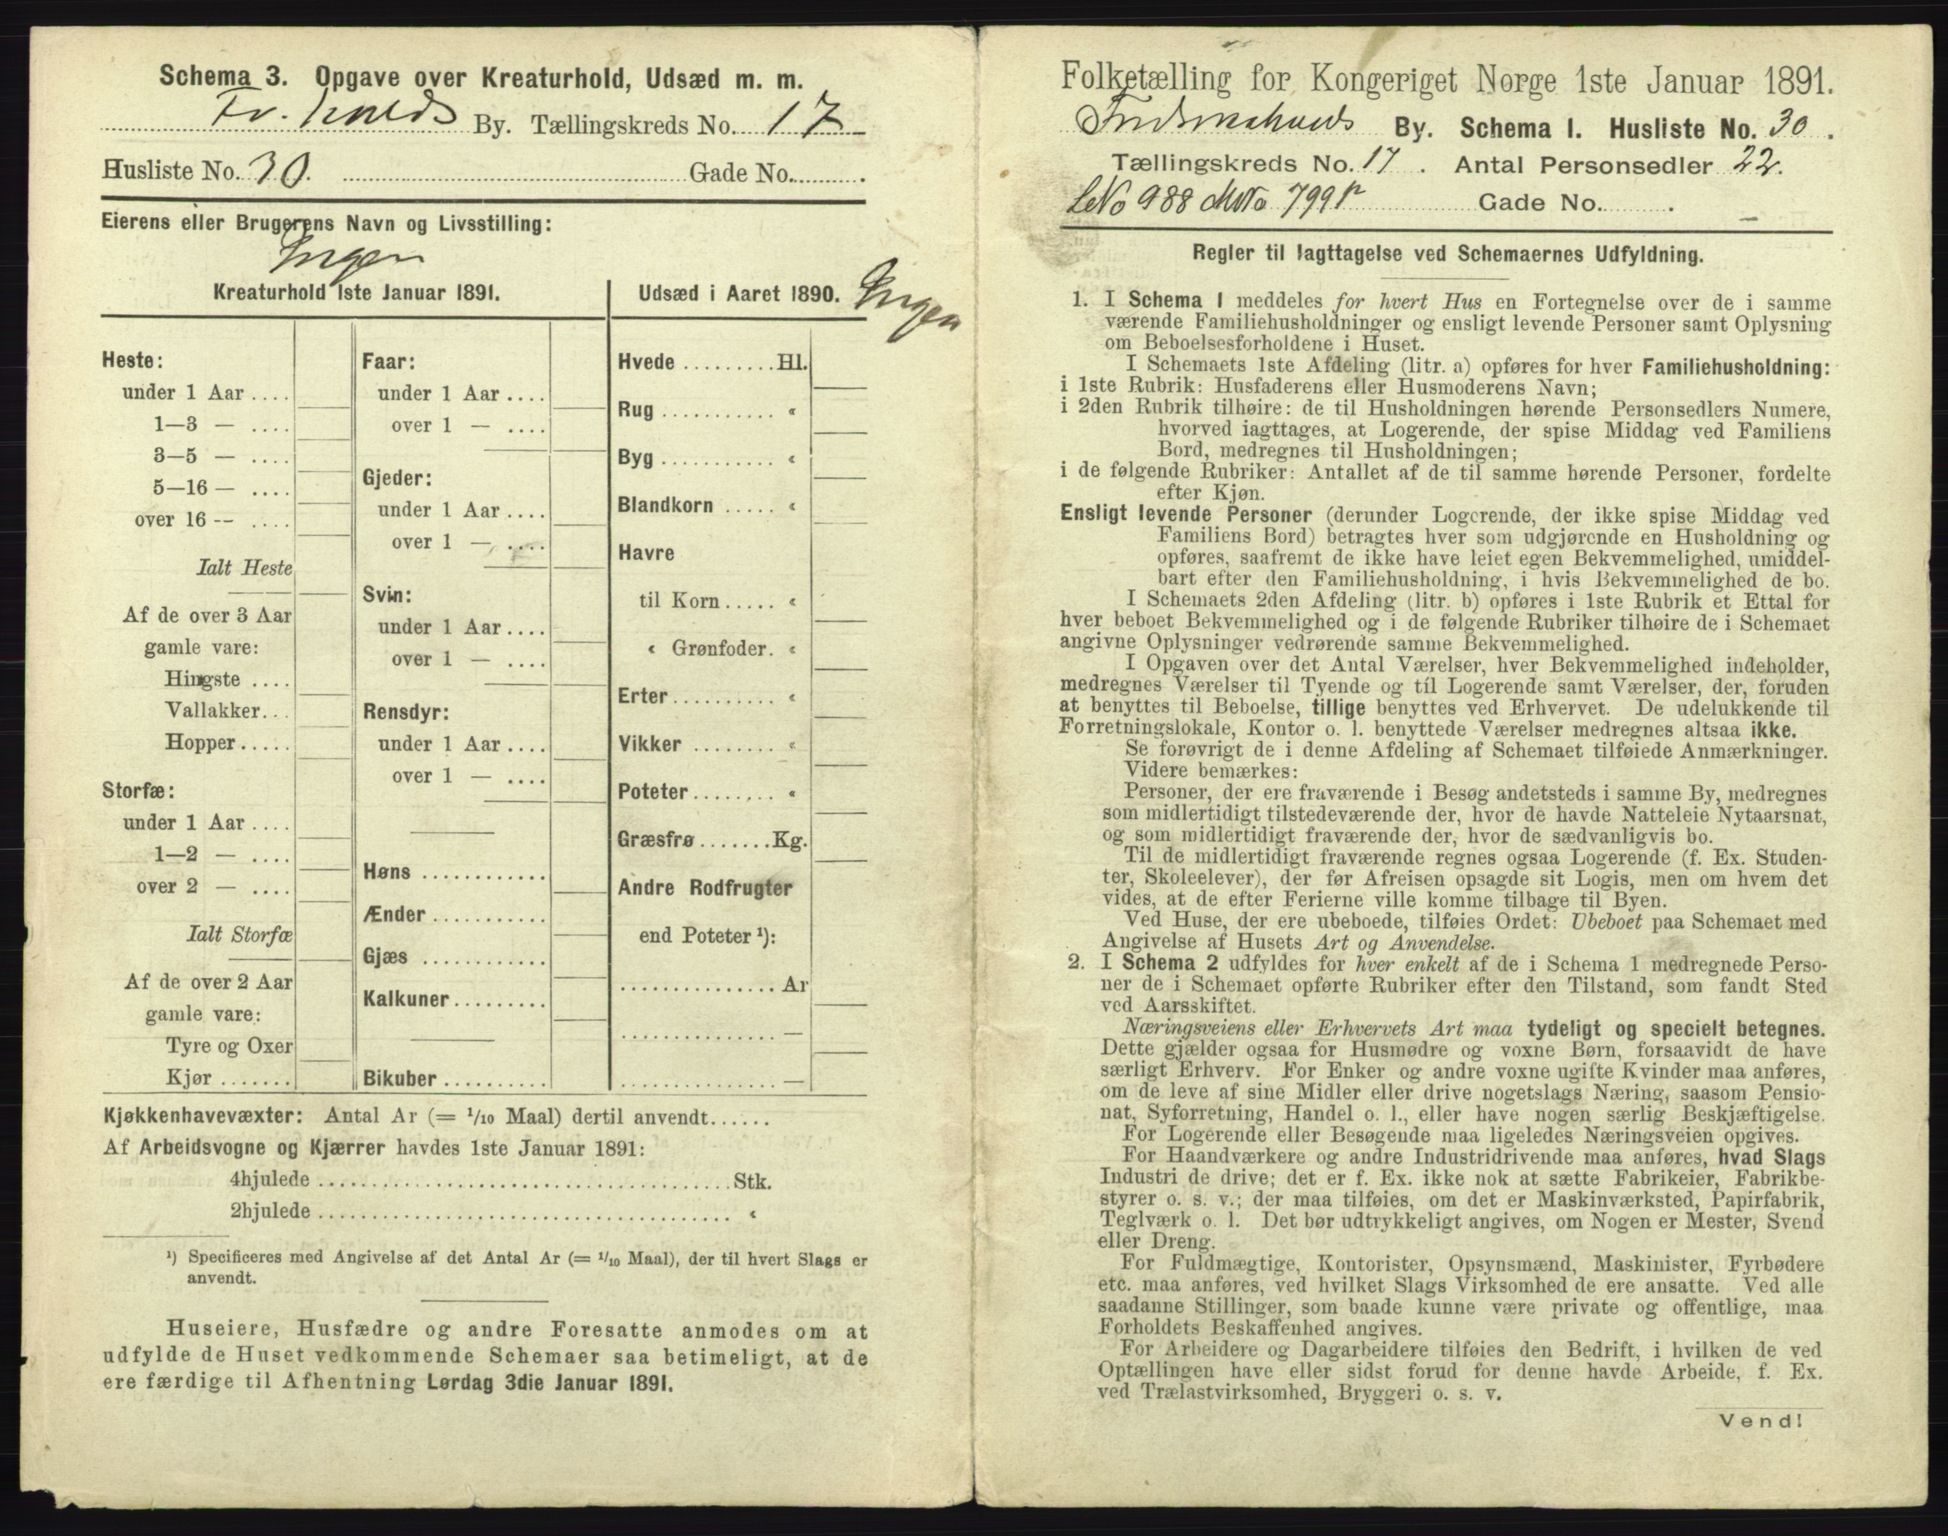 Schema 3. Opgave over Kreaturhold, Udsæd m. m.
Fr.halds By. Tællingskreds No. 17
Husliste No. 30. Gade No. .
Eierens eller Brugerens Navn og Livsstilling:
Ingen
Kreaturhold 1ste Januar 1891.
Heste:
under 1 Aar ....
1—3 — ....
3—5 — ....
5—16 — ....
over 16 -- ....
Ialt Heste
Af de over 3 Aar
gamle vare:
Hingste ....
Vallakker...
Hopper.....
Storfæ:
under 1 Aar ....
1—2 — ....
over 2 — ....
Ialt Storfæ
Af de over 2 Aar
gamle vare:
Tyre og Oxer
Kjør .......
Faar:
under 1 Aar ....
over 1 — ....
Gjeder:
under 1 Aar ....
over 1 — ....
Svin:
under 1 Aar ....
over 1 — ....
Rensdyr:
under 1 Aar ....
over 1 — ....
Høns ............
Ænder ...........
Gjæs ............
Kalkuner.........
Bikuber ..........
Udsæd i Aaret 1890. Ingen
Hvede .........Hl.
Rug ........... «
Byg ........... «
Blandkorn ..... «
Havre
til Korn ..... «
« Grønfoder. «
Erter ......... «
Vikker ........ «
Poteter........ «
Græsfrø .......Kg.
Andre Rodfrugter
end Poteter ¹):
............... Ar
............... —
............... —
Kjøkkenhavevæxter: Antal Ar (= 1/10 Maal) dertil anvendt......
Af Arbeidsvogne og Kjærrer havdes 1ste Januar 1891:
4hjulede ........................................Stk.
2hjulede ........................................ «
¹) Specificeres med Angivelse af det Antal Ar (= 1/10 Maal), der til hvert Slags er
anvendt.
Huseiere, Husfædre og andre Foresatte anmodes om at
udfylde de Huset vedkommende Schemaer saa betimeligt, at de
ere færdige til Afhentning Lørdag 3die Januar 1891.
Folketælling for Kongeriget Norge 1ste Januar 1891.
Fredrikshalds By. Schema I. Husliste No. 30.
Tællingskreds No. 17. Antal Personsedler 22.
LNo 988 MNo 799 Gade No. .
Regler til Iagttagelse ved Schemaernes Udfyldning.
1. I Schema I meddeles for hvert Hus en Fortegnelse over de i samme
værende Familiehusholdninger og ensligt levende Personer samt Oplysning
om Beboelsesforholdene i Huset.
I Schemaets 1ste Afdeling (litr. a) opføres for hver Familiehusholdning:
i 1ste Rubrik: Husfaderens eller Husmoderens Navn;
i 2den Rubrik tilhøire: de til Husholdningen hørende Personsedlers Numere,
hvorved iagttages, at Logerende, der spise Middag ved Familiens
Bord, medregnes til Husholdningen;
i de følgende Rubriker: Antallet af de til samme hørende Personer, fordelte
efter Kjøn.
Ensligt levende Personer (derunder Logerende, der ikke spise Middag ved
Familiens Bord) betragtes hver som udgjørende en Husholdning og
opføres, saafremt de ikke have leiet egen Bekvemmelighed, umiddel-
bart efter den Familiehusholdning, i hvis Bekvemmelighed de bo.
I Schemaets 2den Afdeling (litr. b) opføres i 1ste Rubrik et Ettal for
hver beboet Bekvemmelighed og i de følgende Rubriker tilhøire de i Schemaet
angivne Oplysninger vedrørende samme Bekvemmelighed.
I Opgaven over det Antal Værelser, hver Bekvemmelighed indeholder,
medregnes Værelser til Tyende og til Logerende samt Værelser, der, foruden
at benyttes til Beboelse, tillige benyttes ved Erhvervet. De udelukkende til
Forretningslokale, Kontor o. l. benyttede Værelser medregnes altsaa ikke.
Se forøvrigt de i denne Afdeling af Schemaet tilføiede Anmærkninger.
Videre bemærkes:
Personer, der ere fraværende i Besøg andetsteds i samme By, medregnes
som midlertidigt tilstedeværende der, hvor de havde Natteleie Nytaarsnat,
og som midlertidigt fraværende der, hvor de sædvanligvis bo.
Til de midlertidigt fraværende regnes ogsaa Logerende (f. Ex. Studen-
ter, Skoleelever), der før Afreisen opsagde sit Logis, men om hvem det
vides, at de efter Ferierne ville komme tilbage til Byen.
Ved Huse, der ere ubeboede, tilføies Ordet: Ubeboet paa Schemaet med
Angivelse af Husets Art og Anvendelse.
2. I Schema 2 udfyldes for hver enkelt af de i Schema 1 medregnede Perso-
ner de i Schemaet opførte Rubriker efter den Tilstand, som fandt Sted
ved Aarsskiftet.
Næringsveiens eller Erhvervets Art maa tydeligt og specielt betegnes.
Dette gjælder ogsaa for Husmødre og voxne Børn, forsaavidt de have
særligt Erhverv. For Enker og andre voxne ugifte Kvinder maa anføres,
om de leve af sine Midler eller drive nogetslags Næring, saasom Pensio-
nat, Syforretning, Handel o. l., eller have nogen særlig Beskjæftigelse.
For Logerende eller Besøgende maa ligeledes Næringsveien opgives.
For Haandværkere og andre Industridrivende maa anføres, hvad Slags
Industri de drive; det er f. Ex. ikke nok at sætte Fabrikeier, Fabrikbe-
styrer o. s. v.; der maa tilføies, om det er Maskinværksted, Papirfabrik,
Teglværk o. l. Det bør udtrykkeligt angives, om Nogen er Mester, Svend
eller Dreng.
For Fuldmægtige, Kontorister, Opsynsmænd, Maskinister, Fyrbødere
etc. maa anføres, ved hvilket Slags Virksomhed de ere ansatte. Ved alle
saadanne Stillinger, som baade kunne være private og offentlige, maa
Forholdets Beskaffenhed angives.
For Arbeidere og Dagarbeidere tilføies den Bedrift, i hvilken de ved
Optællingen have eller sidst forud for denne havde Arbeide, f. Ex.
ved Trælastvirksomhed, Bryggeri o. s. v.
Vend!